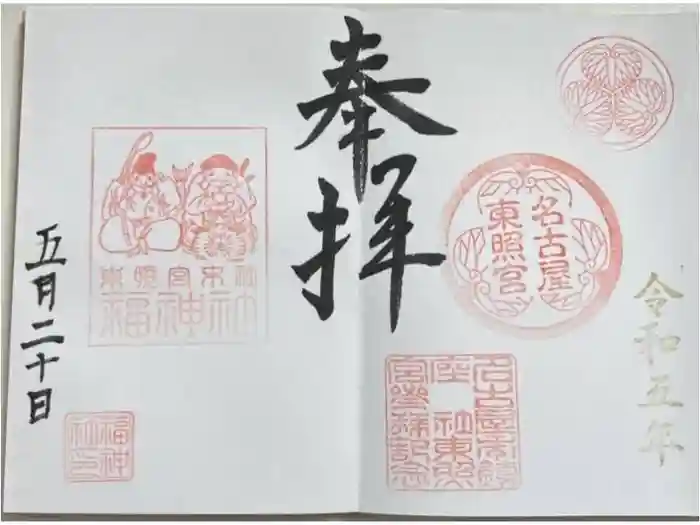 令和五年
名古屋
東照宮
奉拝
名古屋市鎮
座　社東照
宮参拝記念
東照宮末社
福神社
五月二十日
福神
社印